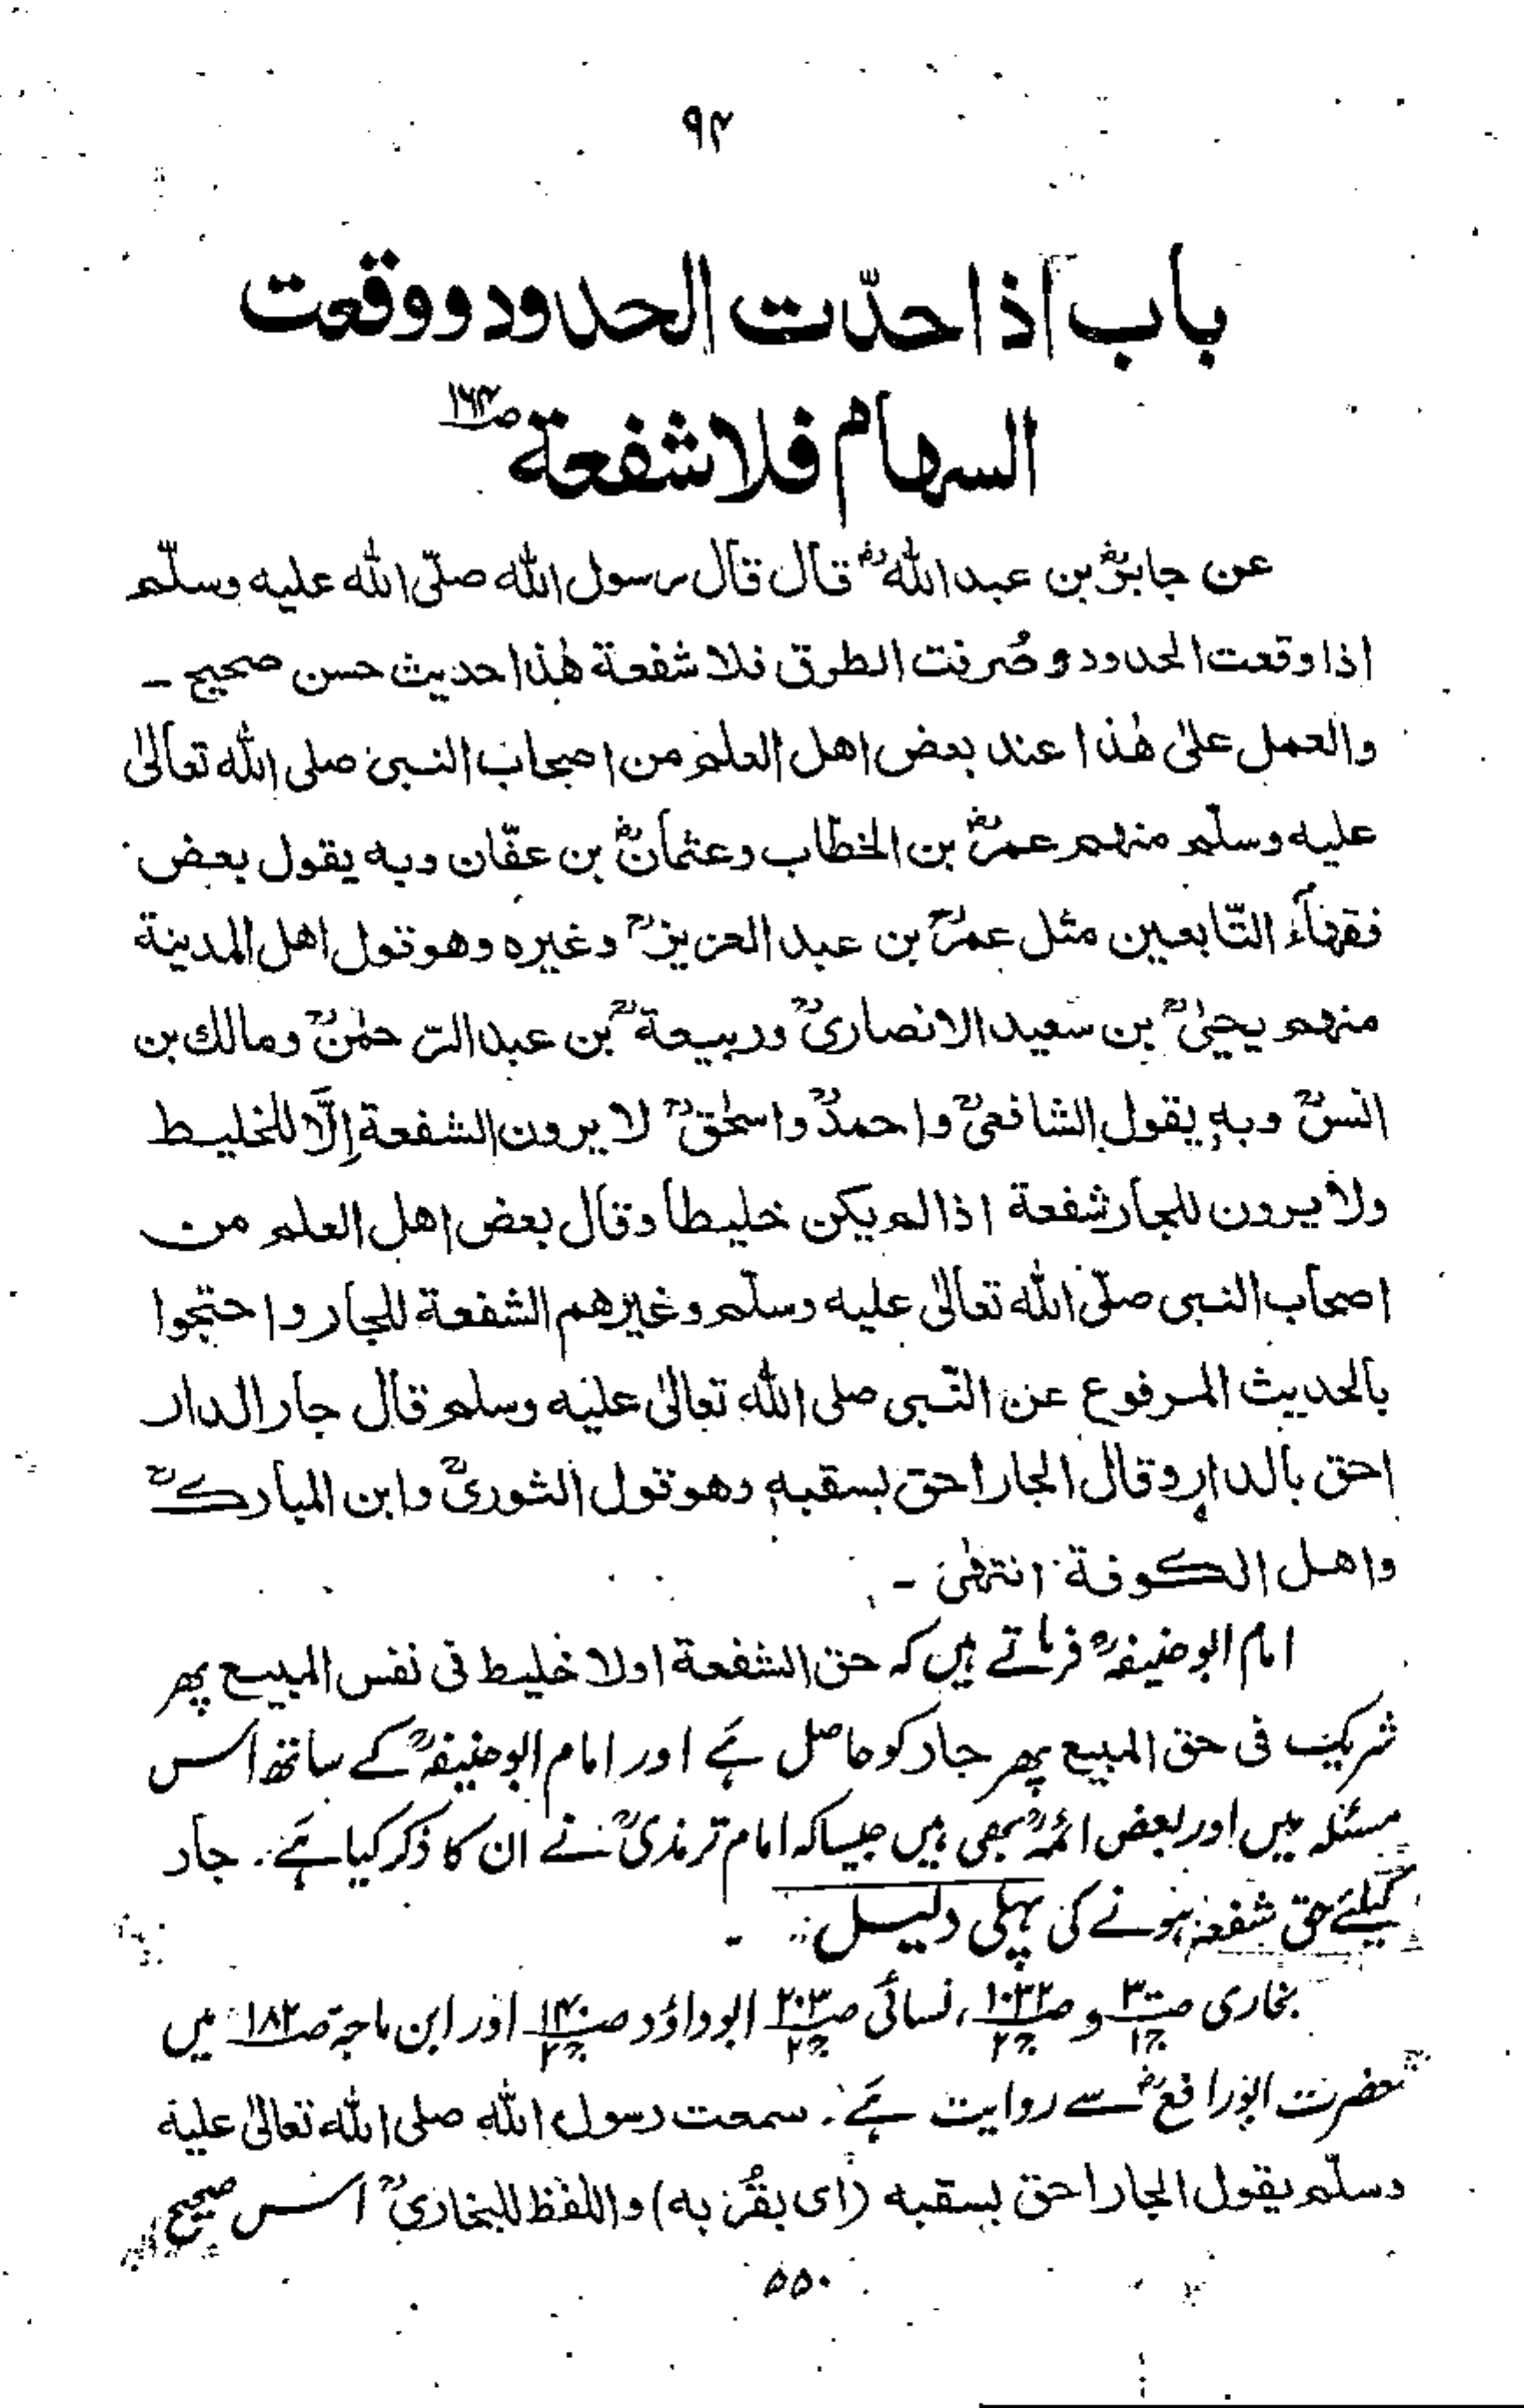 ۹۴
باب اذا حدّت الحدود ووقعت
السهام فلا شفعة ص۱۶۴
عن جابرؓ بن عبداللهؓ قال قال رسول الله صلّی الله علیه وسلّم
اذا وقعت الحدود و صُرفت الطرق فلا شفعة هٰذا حدیث حسن صحیح ۔
والعمل علیٰ هٰذا عند بعض اهل العلم من اصحاب النبی صلی الله تعالیٰ
علیه وسلّم منهم عمرؓ بن الخطاب وعثمانؓ بن عفّان وبه یقول بعض
فقهاء التّابعین مثل عمرؒ بن عبد العزیزؒ وغیره وهو قول اهل المدینة
منهم یحییٰؒ بن سعید الانصاریؒ وربیعةؒ بن عبد الرّحمٰنؒ ومالك بن
انسؒ وبهٖ یقول الشافعیؒ واحمدؒ واسحٰقؒ لا یرون الشفعة اِلّا للخلیط
ولا یرون للجار شفعة اذا لم یکن خلیطاً وقال بعض اهل العلم من
اصحاب النبی صلّی الله تعالیٰ علیه وسلّم وغیرهم الشفعة للجار واحتجوا
بالحدیث المرفوع عن النّبی صلی الله تعالیٰ علیه وسلم قال جار الدار
احق بالدار وقال الجار احق بسقبهٖ وهو قول الثوریؒ وابن المبارکؒ
واهل الکوفة انتهٰی ۔
امام ابوحنیفہؒ فرماتے ہیں کہ حق الشفعة اولا خلیط فی نفس المبیع پھر
شریک فی حق المبیع پھر جار کو حاصل ہے اور امام ابوحنیفہؒ کے ساتھ اس
مسئلہ میں اور بعض ائمہؒ بھی ہیں جیسا کہ امام ترمذیؒ نے ان کا ذکر کیا ہے۔ جار
کیلئے حق شفعہ ہونے کی پہلی دلیل :۔
بخاری ص۳۰۰ ج۱ و ص۱۰۳۲ ج۲، نسائی ص۲۰۳ ج۲ ابوداؤد ص۱۴۰ ج۲ اور ابن ماجة ص۱۸۲ میں
حضرت ابورافعؓ سے روایت ہے۔ سمعت رسول الله صلی الله تعالیٰ علیه
وسلّم یقول الجار احق بسقبه (ای بقُربه) واللفظ للبخاریؒ اس صحیح
۵۵۰